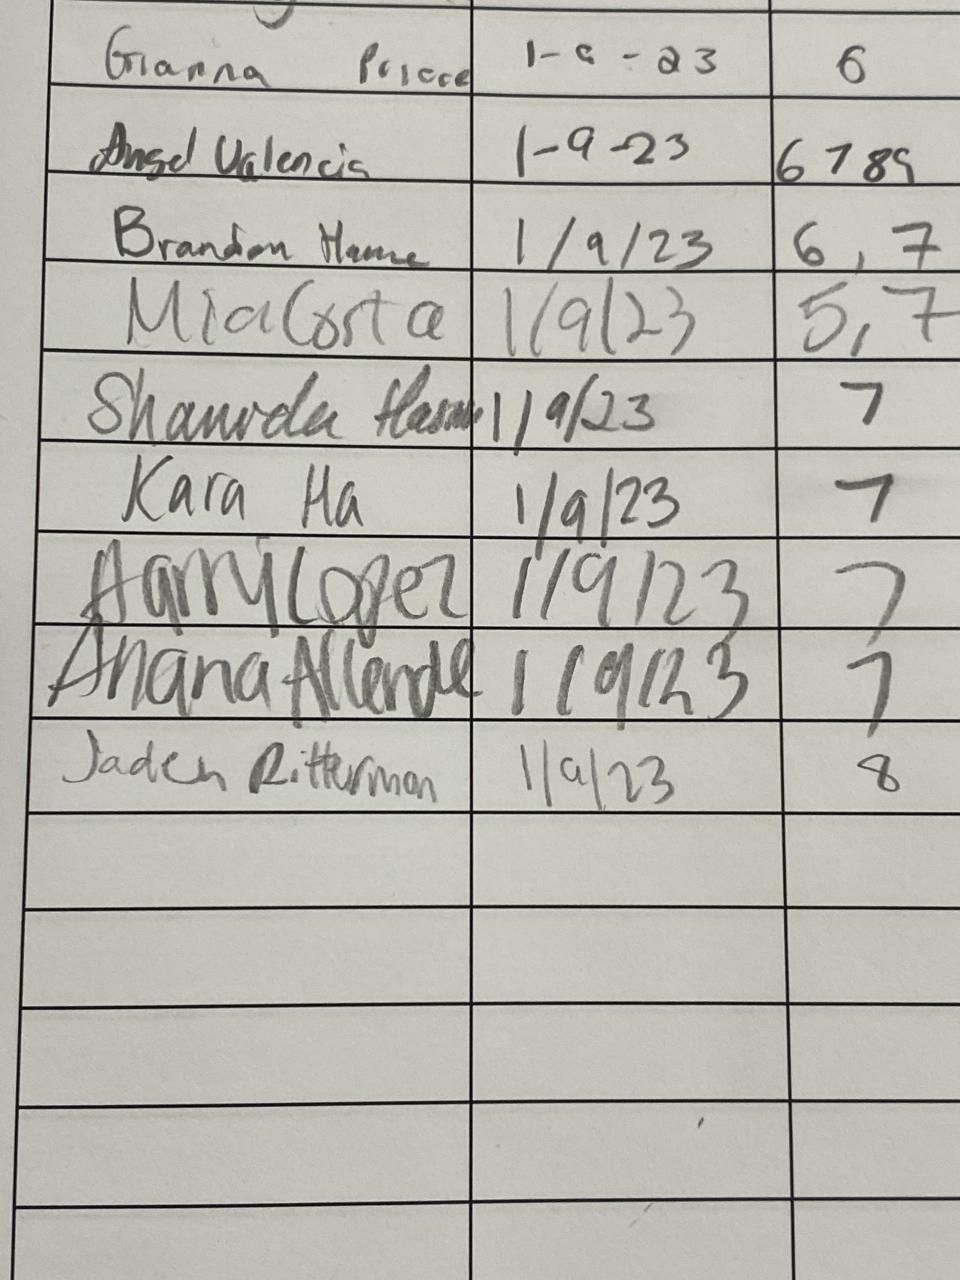 Gianna 1-9-23 6
Angel Valencia 1-9-23 6789
Brandon 1/9/23 6, 7
Mia Costa 1/9/23 5, 7
1/9/23 7
Kara Ha 1/9/23 7
Harry Lopez 1/9/23 7
Ariana Allende 1/9/23 7
Jaden Ritterman 1/9/23 8